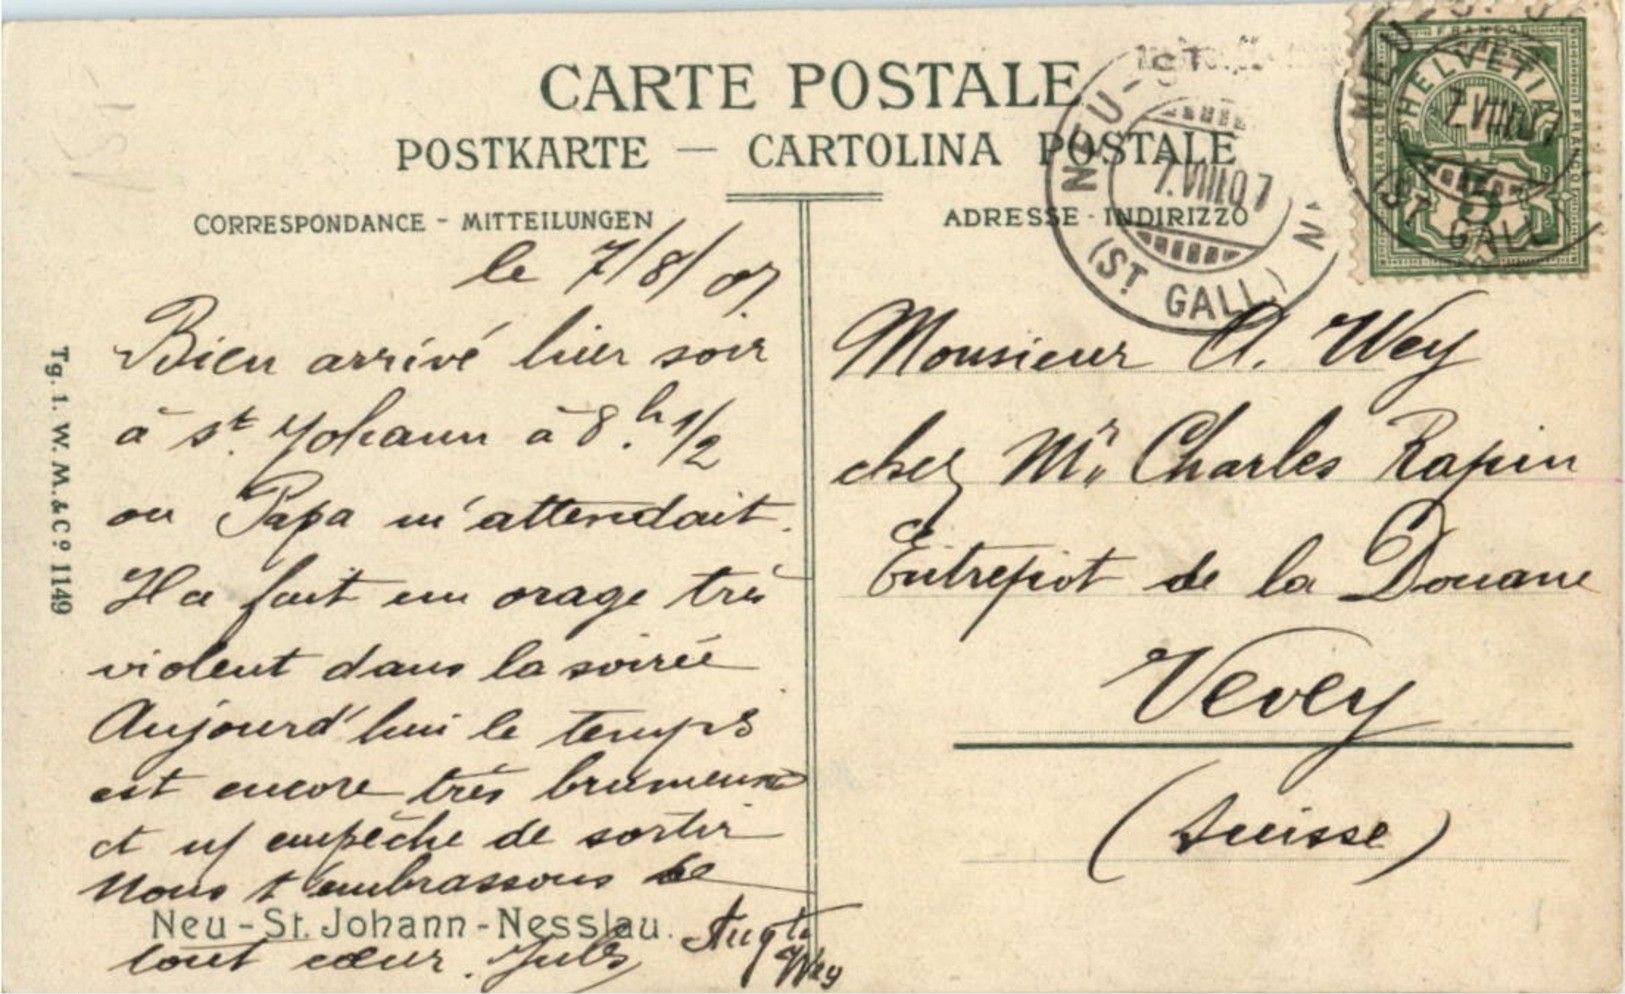 CARTE POSTALE
POSTKARTE — CARTOLINA POSTALE
CORRESPONDANCE - MITTEILUNGEN
le 7/8/07
Bien arrivé hier soir
à St. Johann à 8.h 1/2
ou Papa m'attendait.
Il a fait un orage très
violent dans la soirée
Aujourd'hui le temps
est encore très brumeux
et ns/ empêche de sortir
Nous t'embrassons de
Neu-St. Johann-Nesslau.
tout cœur. Jules
Augte Wey
Tg. 1. W. M. & Cº 1149
ADRESSE - INDIRIZZO
Monsieur A. Wey
chez Mr. Charles Rapin
Entrepôt de la Douane
Vevey
(Suisse)
NEU-ST.
7.VIII.07
(ST. GALL.)
FRANCO
HELVETIA
5
NEU-ST. J
7.VIII.07
(ST. GALL.)